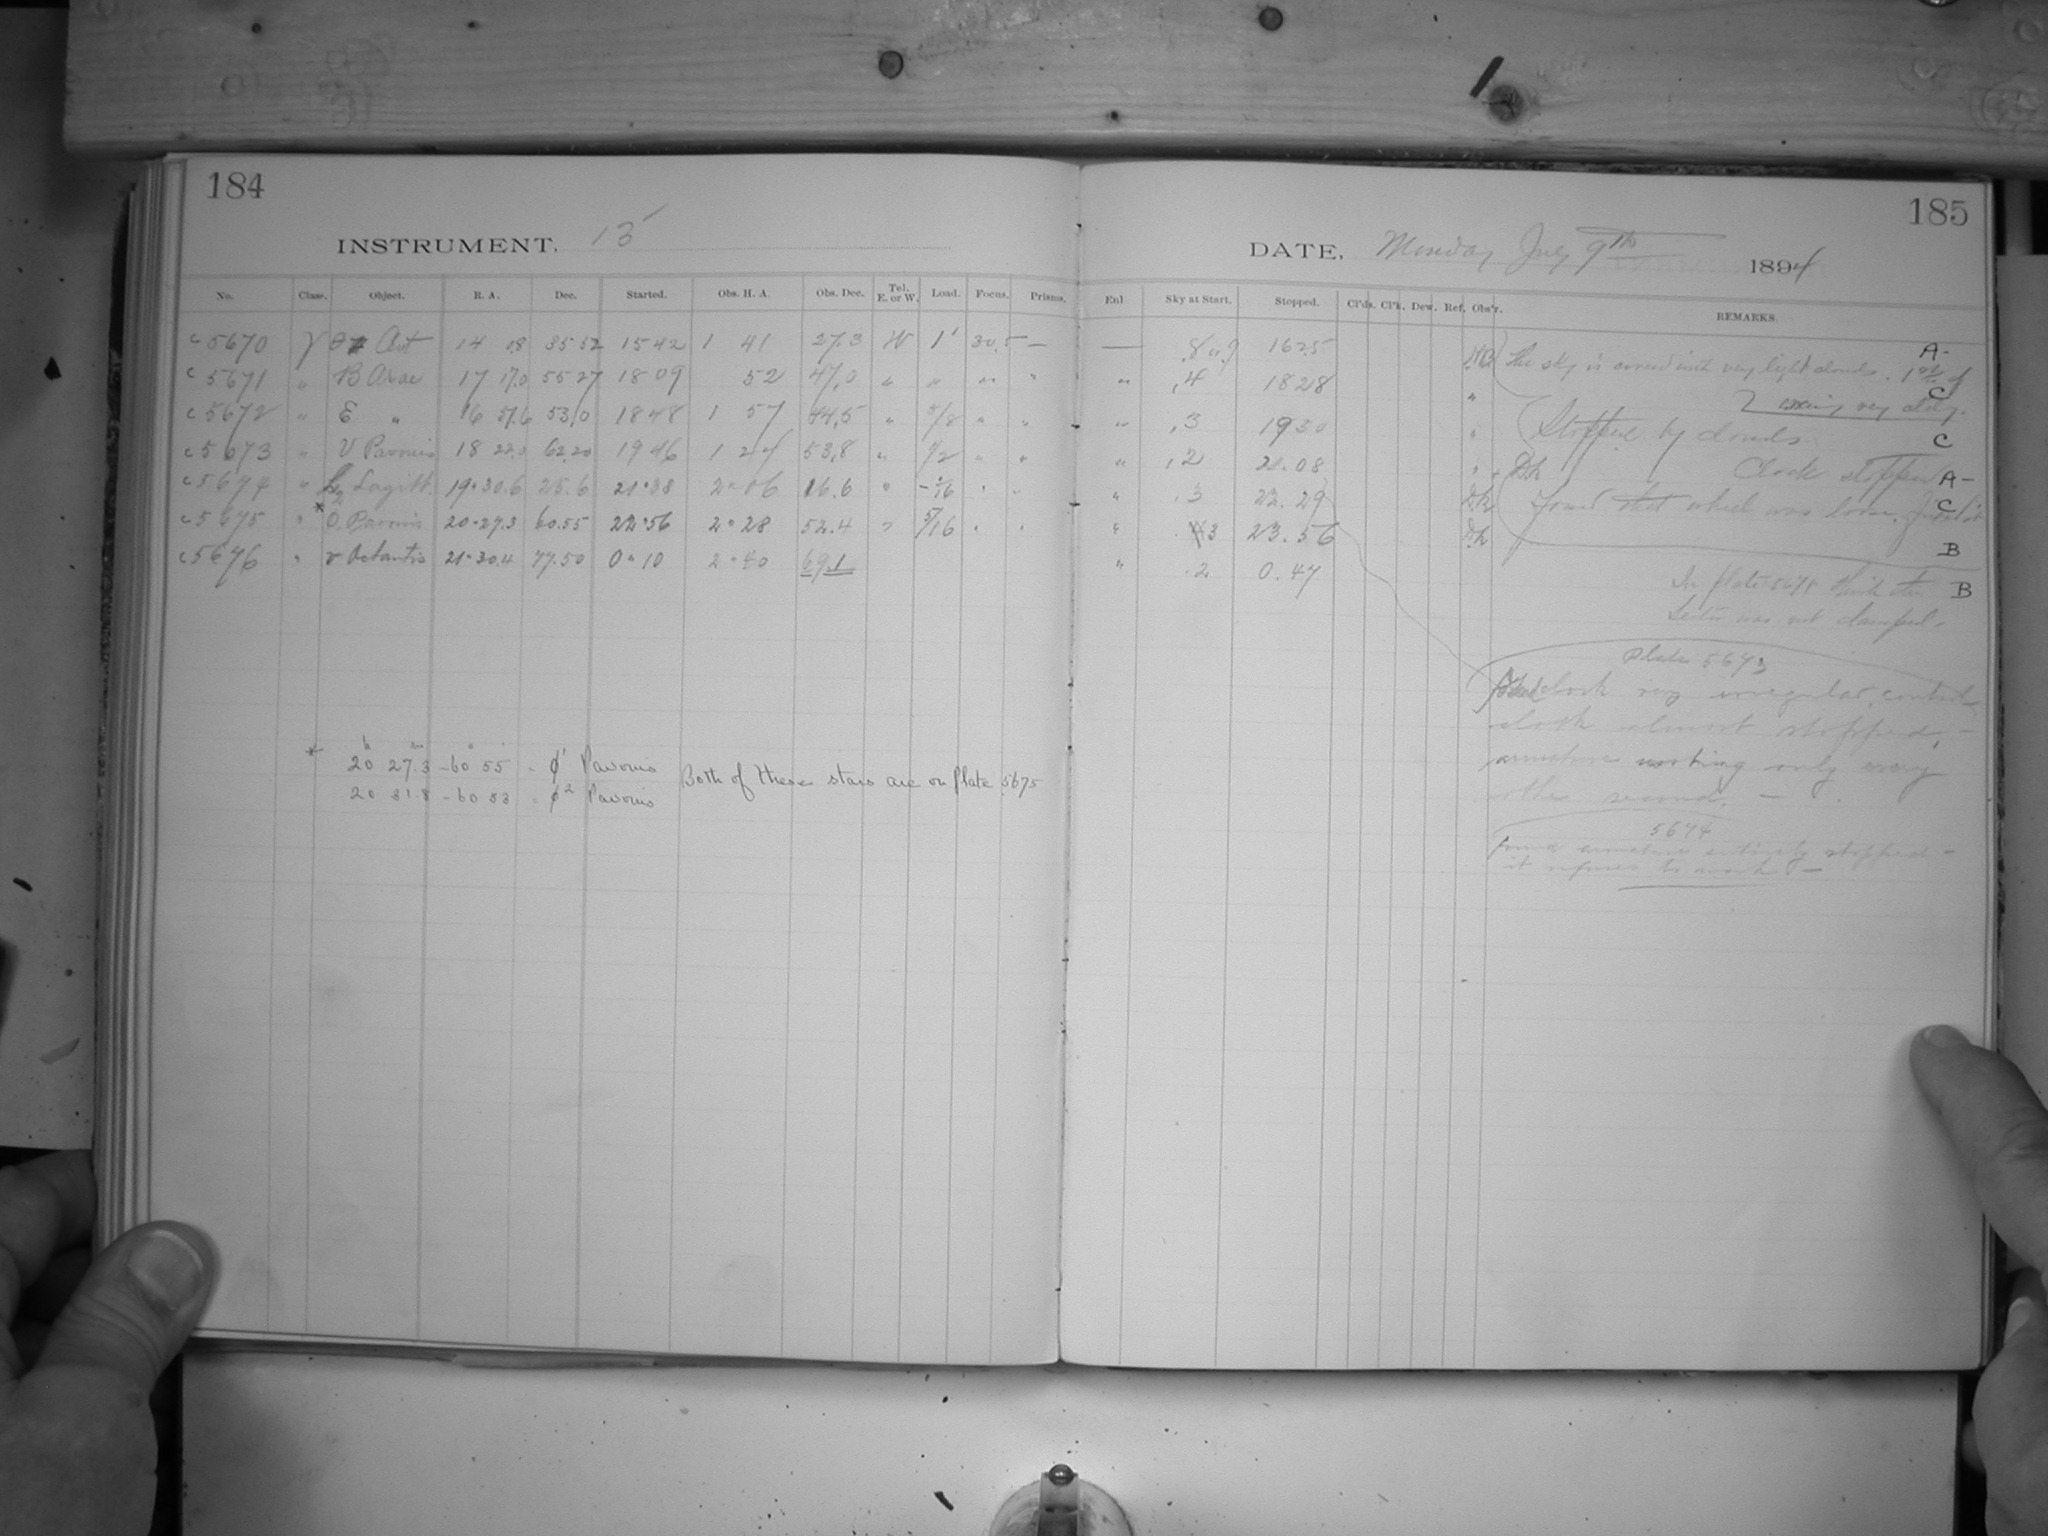 184
INSTRUMENT. 13
No. Class. Object. R. A. Dec. Started. Obs. H. A. Obs. Dec. Tel. E. or W. Load. Focus. Prisms.
c 5670 γ Θ Cent 14 0.8 35 52 15 42 1 41 27.3 W 1' 30.5 —
c 5671 " B Arae 17 17.0 55 27 18 09 52 47,0 " " " "
c 5672 " E " 16 51.6 53,0 18 48 1 57 44,5 " 5/8 " "
c 5673 " V Pavonis 18 22.0 62.20 19 46 1 24 53,8 " 1/2 " "
c 5674 " Sagitt. 19 30.6 25.6 21 38 2 06 16.6 " " "
c 5675 " * Pavonis 20 27.3 60.55 22 56 2 28 52.4 " 5/16 " "
c 5676 " ν Octantis 21 30.4 77.50 0 10 2 40 69.1
* 20 h 27.3 m -60 55 = ϕ1 Pavonis
20 31.8 -60 53 = ϕ2 Pavonis
Both of these stars are on Plate 5675
185
DATE, Monday July 9th 1894
Enl Sky at Start. Stopped. Cl'ds. Cl'k. Dew. Ref. Obs'r. REMARKS.
— .8 or .9 1625 The sky is covered with very light clouds. A-
" ,4 1828 " very C
" ,3 1930 " Stopped by clouds C
" ,2 21.08 " Clock stopped A-
" .3 22.29 Found that wheel was loose. C
" 3 23.56 B
" .2 0.47 In plate the B
was not clamped.
Plate 5673
clock very irregular, control
clock almost stopped,—
armature working only every
other second. —
5674
Found armature entirely stopped —
it refuses to work —